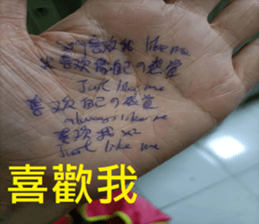 喜歡我 like me
喜歡自己の感覚
Just like me
喜歡自己の感覚
always like me
喜歡我
Just like me
喜歡我